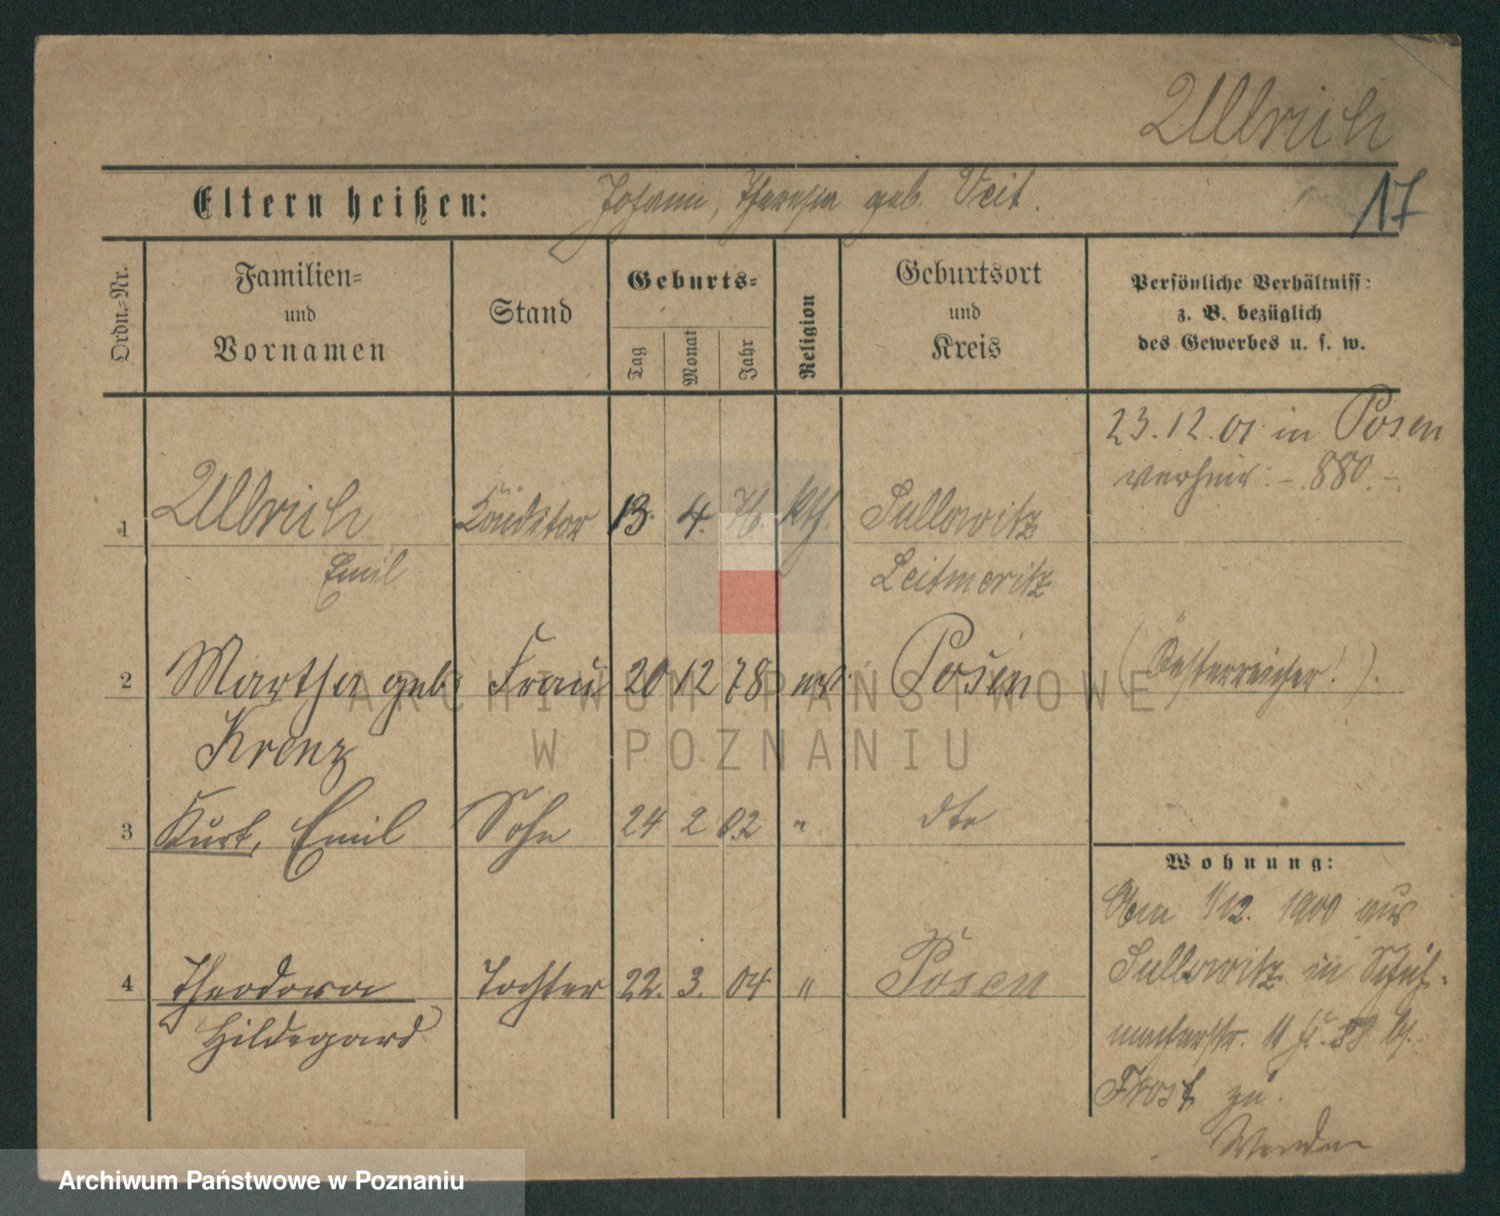 Ullrich
Eltern heißen: Johann, Theresia geb. Veit.
17
Ordn.-Nr.
Familien-
und
Vornamen
Stand
Geburts-
Tag
Monat
Jahr
Religion
Geburtsort
und
Kreis
Persönliche Verhältniss:
z. B. bezüglich
des Gewerbes u. s. w.
23.12.01 in Posen
verheir. - 880.-
1 Ullrich Conditor 13. 4. 76. kth. Sullowitz
Emil Leitmeritz
2 Martha geb. Frau 20 12 78 ev. Posen (Oesterreicher!).
Krenz
3 Kurt, Emil Sohn 24 2 02 " dto
Wohnung:
Am 1/12. 1900 aus
Sullowitz in Schuh-
macherstr. 11
4 Theodora Tochter 22. 3. 04 " Posen
Hildegard
Frost zu.
Wenden
ARCHIWUM PAŃSTWOWE
W POZNANIU
Archiwum Państwowe w Poznaniu